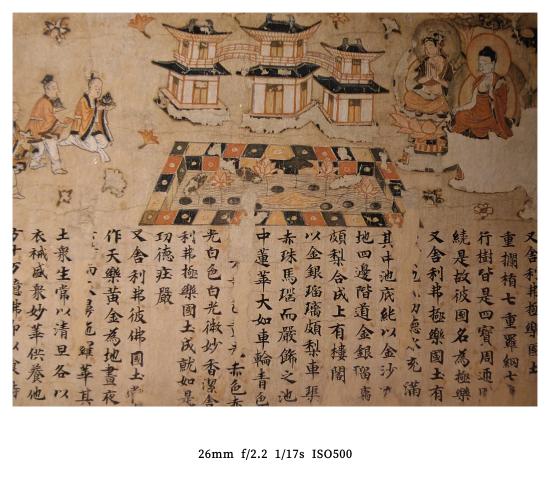 又舍利弗極樂國土
重欄楯七重羅網七
行樹皆是四寶周通
繞是故彼國名為極樂
又舍利弗極樂國土有
水充滿
其中池底純以金沙
地四邊階道金銀瑠
頗梨合成上有樓閣
以金銀瑠璃頗梨車璖
赤珠馬瑙而嚴飾之池
中蓮華大如車輪青色
赤色赤
光白色白光微妙香潔舍
利弗極樂國土成就如是
功德莊嚴
又舍利弗彼佛國土常
作天樂黃金為地晝夜
而羅華其
土衆生常以清旦各以
衣祴盛衆妙華供養他
方十万億佛即以食時
26mm f/2.2 1/17s ISO500